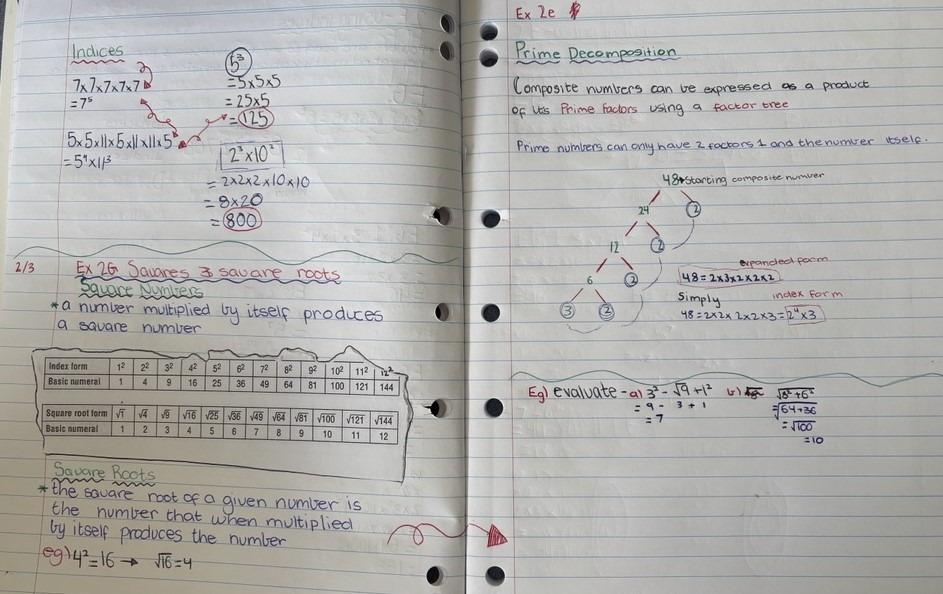 Indices
7x7x7x7x7
= 7⁵
5x5x11x5x11x11x5
= 5⁴x11³
5³
=5x5x5
= 25x5
= 125
2³x10²
= 2x2x2x10x10
= 8x20
= 800
2/3
Ex 2G Squares & square roots
Square Numbers
* a number multiplied by itself produces
a square number
Index form 1² 2² 3² 4² 5² 6² 7² 8² 9² 10² 11² 12²
Basic numeral 1 4 9 16 25 36 49 64 81 100 121 144
Square root form √1 √4 √9 √16 √25 √36 √49 √64 √81 √100 √121 √144
Basic numeral 1 2 3 4 5 6 7 8 9 10 11 12
Square Roots
* the square root of a given number is
the number that when multiplied
by itself produces the number
eg) 4²=16 → √16=4
Ex 2e
Prime Decomposition
Composite numbers can be expressed as a product
of its Prime factors using a factor tree
Prime numbers can only have 2 factors 1 and the number itself.
48 → Starting composite number
24 2
12 2
6 2
3 2
expanded form
48=2x3x2x2x2
Simply index form
48=2x2x2x2x3=2⁴x3
Eg) evaluate - a) 3² - √9 + 1²
= 9 - 3 + 1
= 7
b) √8²+6²
=√64+36
=√100
=10